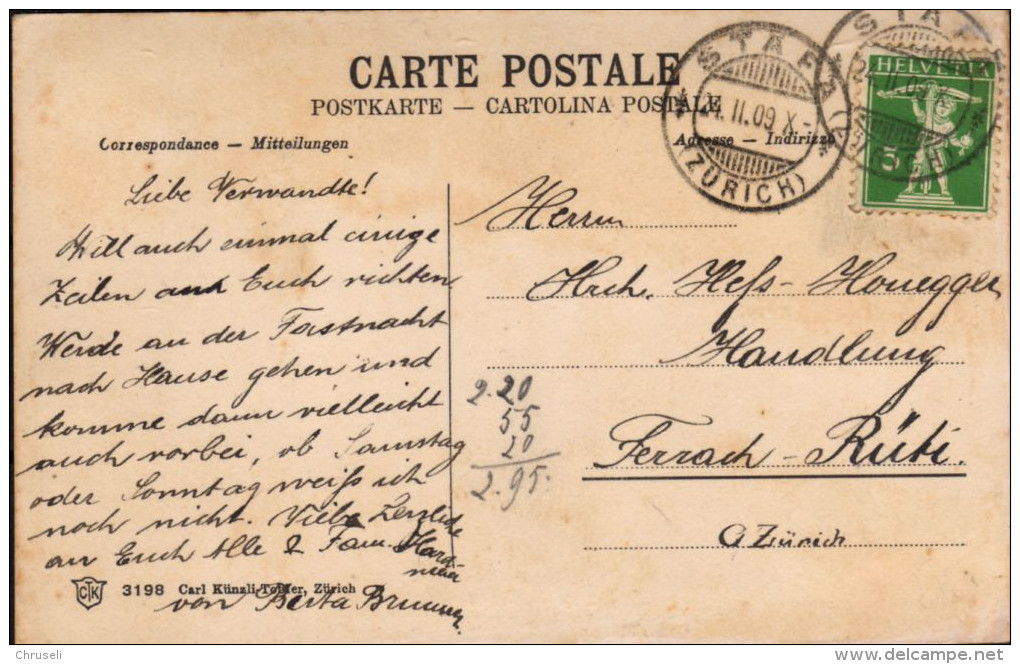 CARTE POSTALE
POSTKARTE — CARTOLINA POSTALE
Correspondance — Mitteilungen
Adresse — Indirizzo
STÄFA
24.II.09 X-
(ZÜRICH)
STÄFA
(ZÜRICH)
HELVETIA
5
Liebe Verwandte!
Will auch einmal einige
Zeilen an Euch richten.
Werde an der Fastnacht
nach Hause gehen und
komme dann vielleicht
auch vorbei, ob Samstag
oder Sonntag weiß ich
noch nicht. Viele Herzliche
an Euch Alle & Fam.
von Berta Brunner
Herrn
Hrch. Heß-Honegger
Handlung
Ferrach-Rüti.
Ct Zürich
2.20
55
20
2.95.
CTK
3198 Carl Künzli-Tobler, Zürich
Chruseli
www.delcampe.net